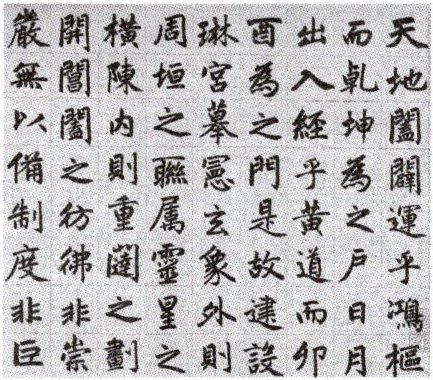 天地闔闢運乎鴻樞
而乹坤為之戶日月
出入經乎黃道而卯
酉為之門是故建設
琳宮摹憲玄象外則
周垣之聯属靈星之
橫陳内則重闥之劃
開閶闔之彷彿非崇
嚴無以備制度非巨